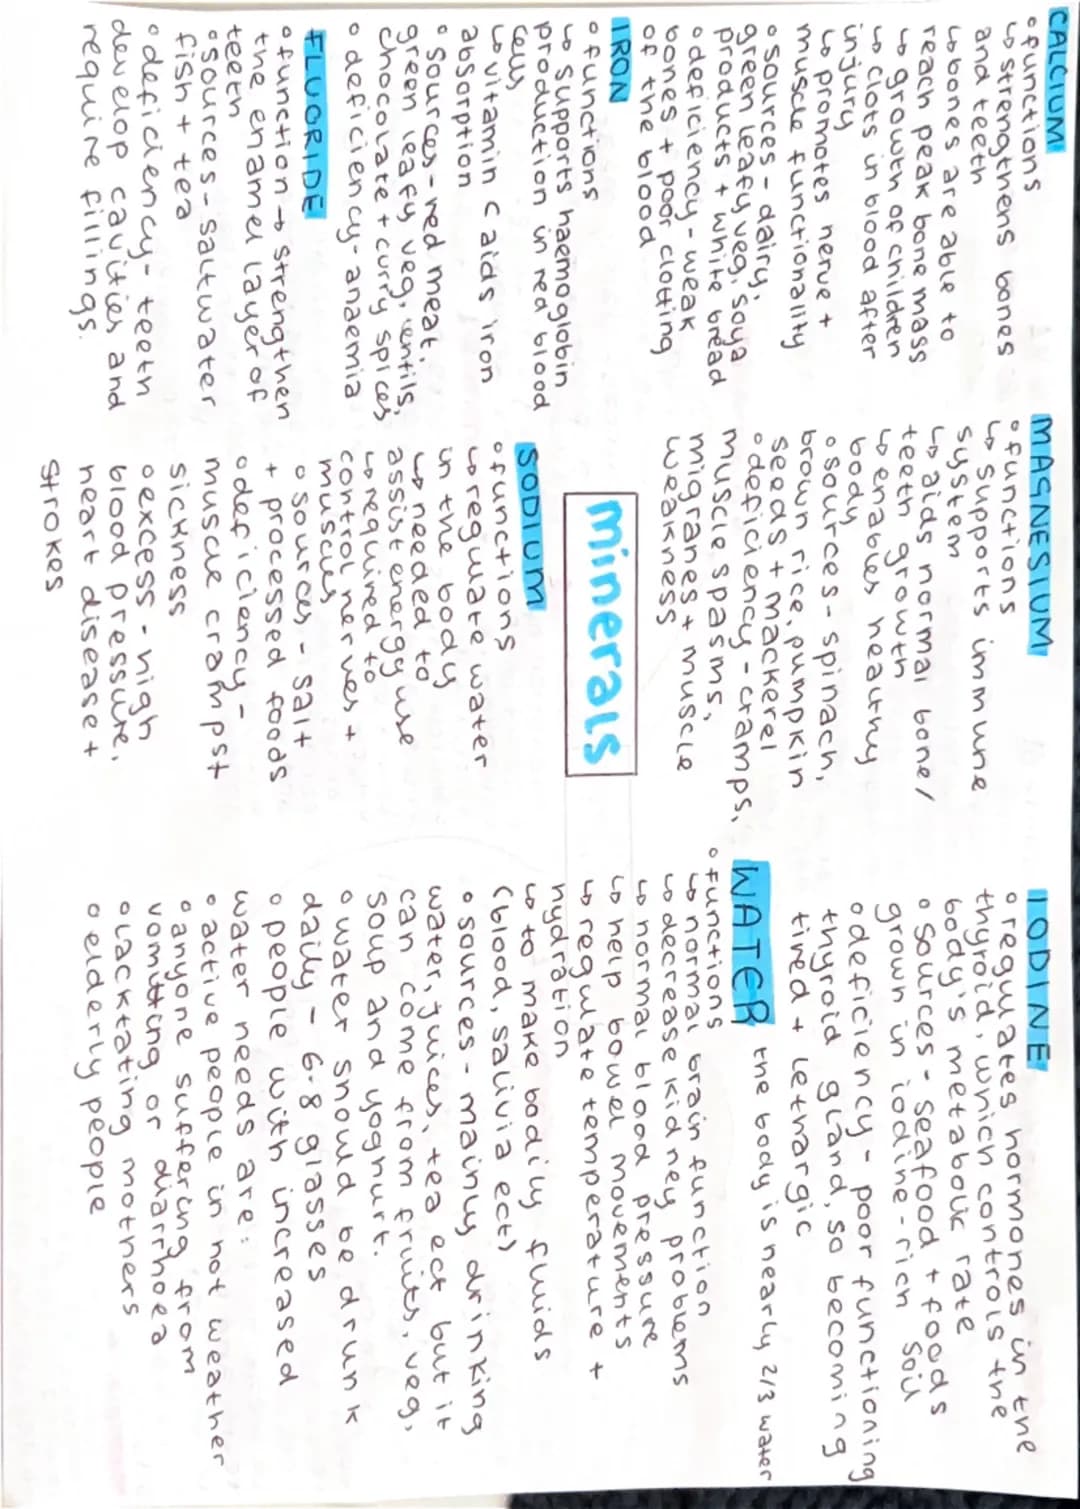 CALCIUM
• functions
↳ strengthens bones
and teeth
↳ bones are able to
reach peak bone mass
↳ growth of children
↳ clots in blood after
injury
↳ promotes nerve +
muscle functionality
• sources - dairy,
green leafy veg, soya
products + white bread
• deficiency - weak
bones + poor clotting
of the blood
IRON
• functions
↳ supports haemoglobin
production in red blood
cells
↳ vitamin C aids iron
absorption
• sources - red meat,
green leafy veg, lentils,
chocolate + curry spices
• deficiency - anaemia
FLUORIDE
• function → strengthen
the enamel layer of
teeth
• sources - saltwater
fish + tea
• deficiency - teeth
develop cavities and
require fillings.
MAGNESIUM
• functions
↳ supports immune
system
↳ aids normal bone/
teeth growth
↳ enables healthy
body
• sources - spinach,
brown rice, pumpkin
seeds + mackerel
• deficiency - cramps,
muscle spasms,
migranes + muscle
weakness
minerals
SODIUM
• functions
↳ regulate water
in the body
↳ needed to
assist energy use
↳ required to
control nerves +
muscles
• sources - salt
+ processed foods
• deficiency -
muscle cramps +
sickness
• excess - high
blood pressure,
heart disease +
strokes
IODINE
• regulates hormones in the
thyroid, which controls the
body's metabolic rate
• sources - seafood + foods
grown in iodine-rich soil
• deficiency - poor functioning
thyroid gland, so becoming
tired + lethargic
WATER the body is nearly 2/3 water
• functions
↳ normal brain function
↳ decrease kidney problems
↳ normal blood pressure
↳ help bowel movements
↳ regulate temperature +
hydration
↳ to make bodily fluids
(blood, salivia ect)
• sources - mainly drinking
water, juices, tea ect but it
can come from fruits, veg,
soup and yoghurt.
• water should be drunk
daily - 6-8 glasses
• people with increased
water needs are:
• active people in hot weather
• anyone suffering from
vomitting or diarrhoea
• lacktating mothers
• elderly people